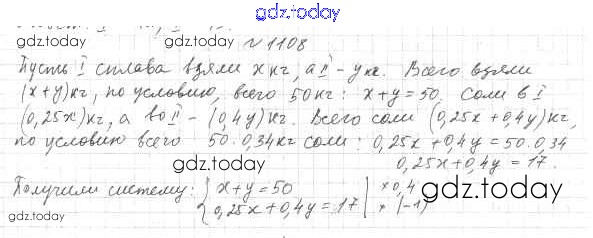 gdz.today
№ 1108
gdz.today gdz.today
Пусть I сплава взяли x кг, а II - y кг. Всего взяли
(x+y) кг, по условию, всего 50 кг: x+y=50. Соли в I
(0,25x) кг, а во II - (0,4y) кг. Всего соли (0,25x+0,4y) кг,
по условию всего 50·0,34 кг соли: 0,25x+0,4y=50·0,34
gdz.today 0,25x+0,4y=17.
Получили систему: { x+y=50 | ×0,4 gdz.today
0,25x+0,4y=17 | × (-1)
gdz.today